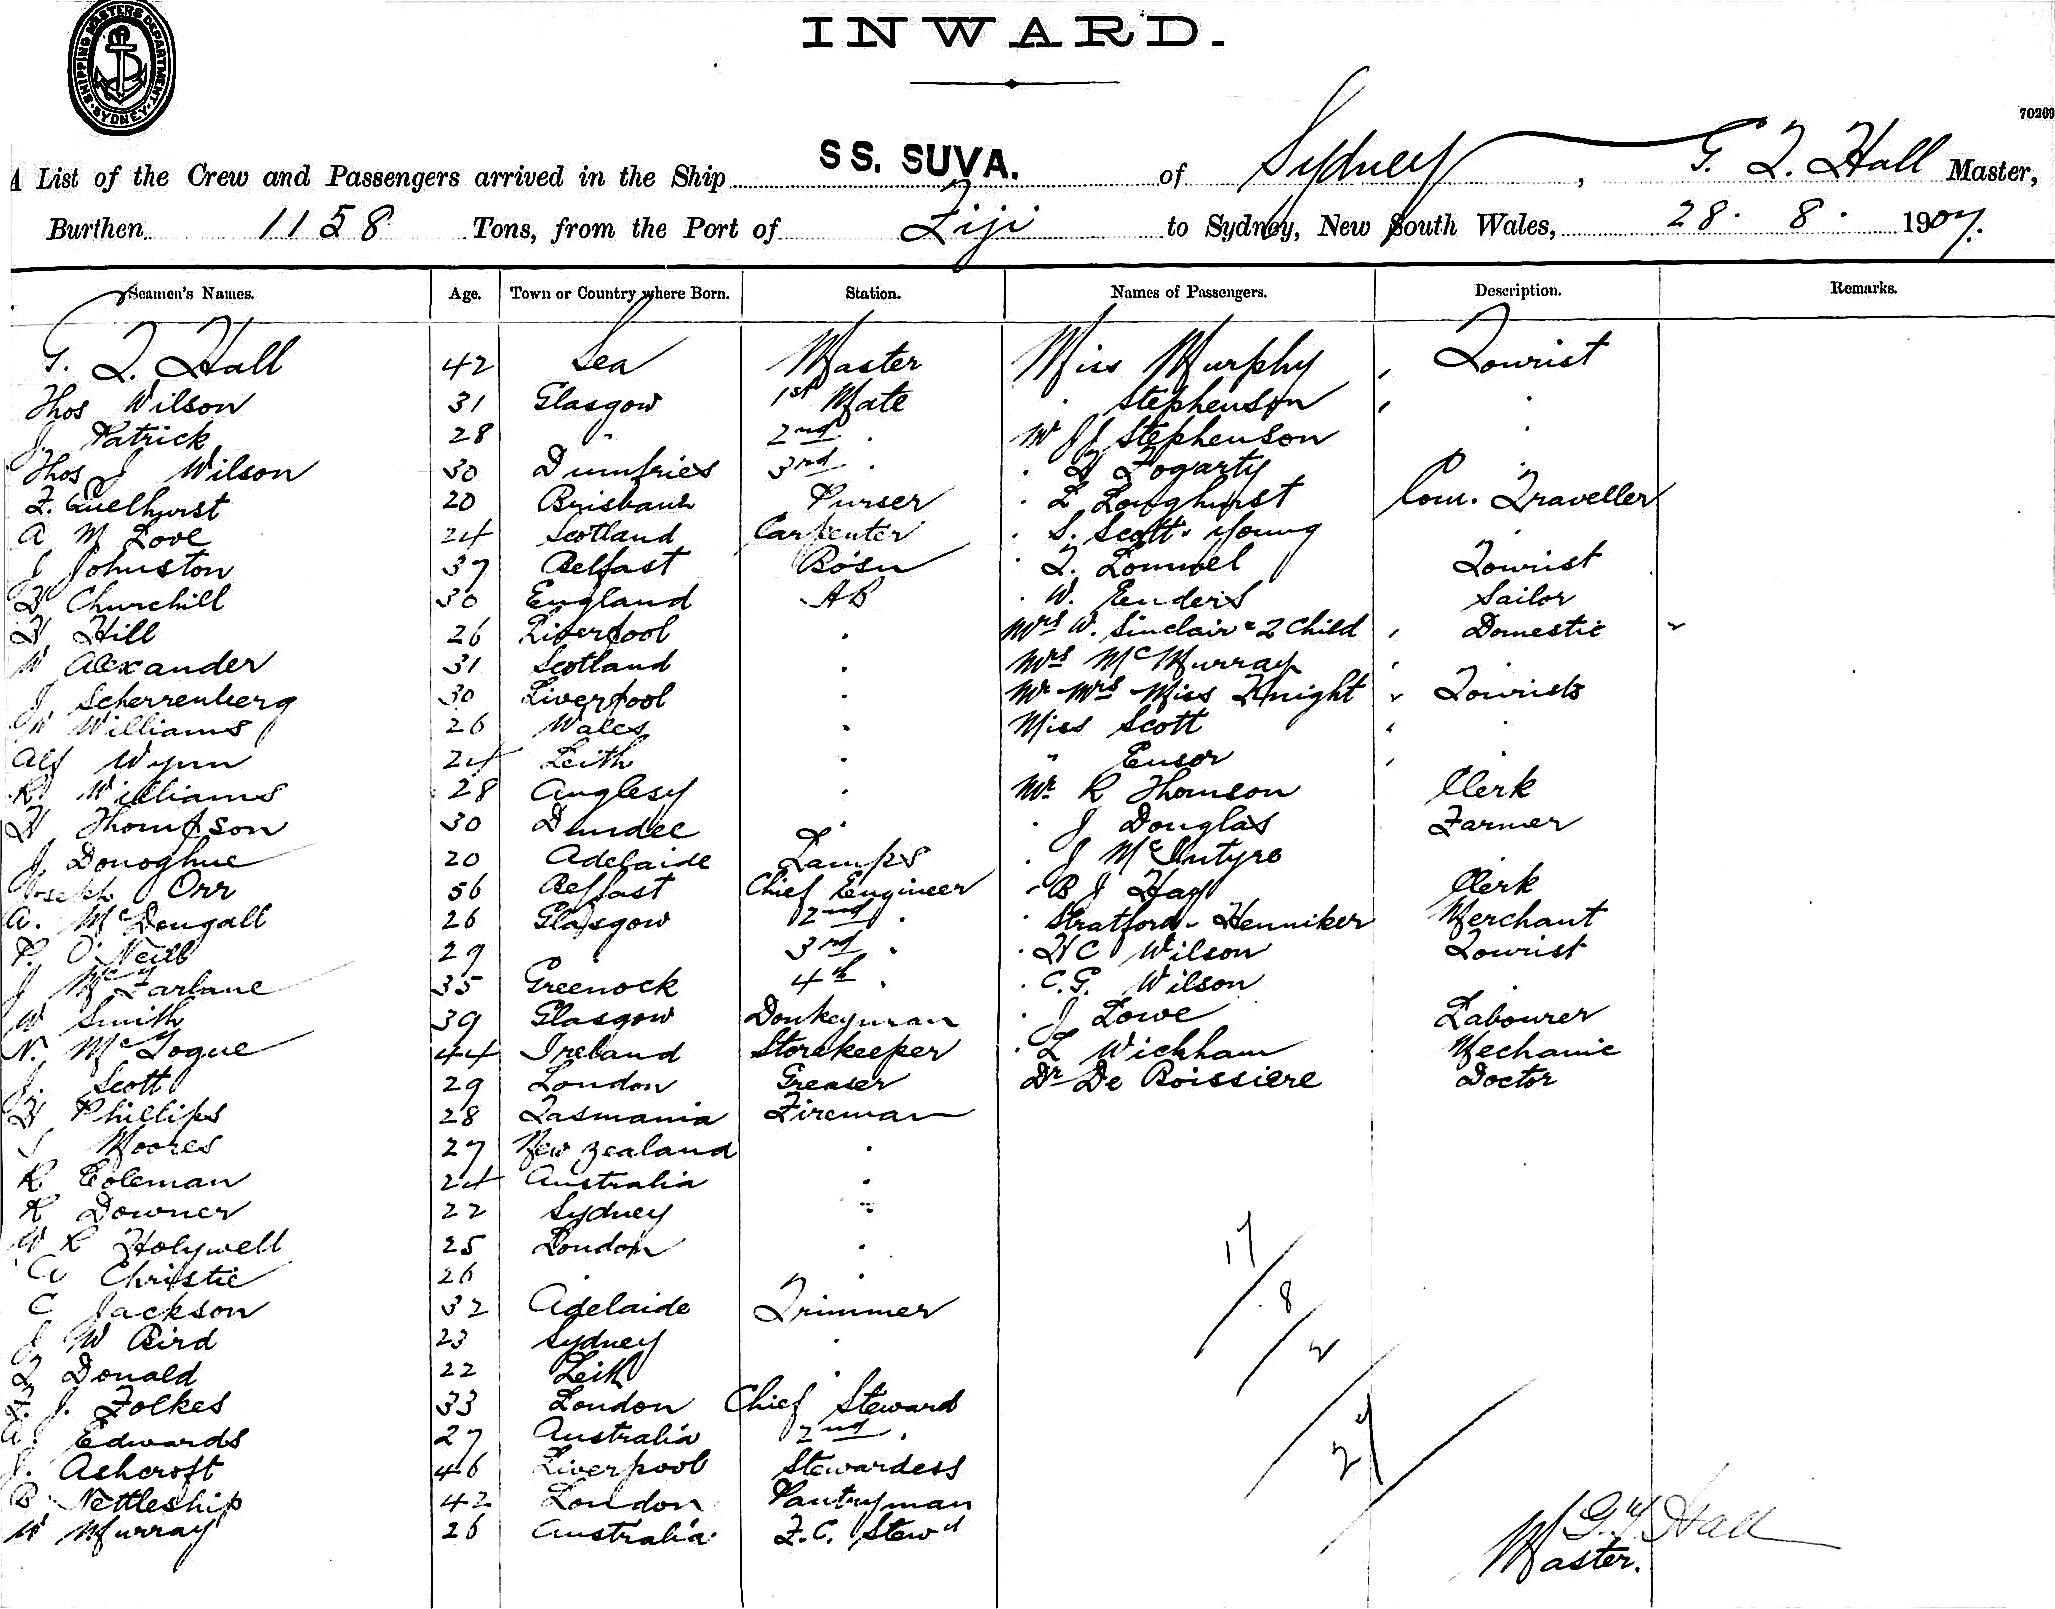 SHIPPING MASTERS DEPARTMENT SYDNEY
INWARD.
70269
A List of the Crew and Passengers arrived in the Ship SS. SUVA. of Sydney, G. T. Hall Master,
Burthen 1158 Tons, from the Port of Fiji to Sydney, New South Wales, 28. 8. 1907.
Seamen's Names. Age. Town or Country where Born. Station. Names of Passengers. Description. Remarks.
G. T. Hall 42 Sea Master Miss Murphy , Tourist
Thos Wilson 31 Glasgow 1st Mate " Stephenson , "
J. Patrick 28 " 2nd " Mr J J Stephenson "
Thos J Wilson 30 Dumfries 3rd " " Fogarty "
F. Quelhurst 20 Brisbane Purser " L Longhurst Com. Traveller
A M Love 24 Scotland Carpenter " S. Scott-Young "
J Johnston 37 Belfast Bosn " T. Lommel Tourist
Churchill 30 England AB " W. Enders Sailor
H Hill 26 Liverpool " Mrs W. Sinclair & 2 Child , Domestic
W Alexander 31 Scotland " Mrs McMurray ,
J Scherrenberg 30 Liverpool " Mr Mrs Miss Knight , Tourists
W Williams 26 Wales " Miss Scott , "
Alf Wynn 24 Leith " " Ensor ,
R Williams 28 Anglesy " Mr R Thomson Clerk
H Thompson 30 Dundee " " J Douglas Farmer
J. Donoghue 20 Adelaide Lamps " J McIntyre
Joseph Orr 56 Belfast Chief Engineer " B J Hay Clerk
A. McDougall 26 Glasgow 2nd " " Stratford-Henniker Merchant
P. O'Neill 29 3rd " " H C Wilson Tourist
J McFarlane 35 Greenock 4th " " C. G. Wilson
W Smith 39 Glasgow Donkeyman " J Lowe Labourer
N. McLogue 44 Ireland Storekeeper " L Wickham Mechanic
J. Scott 29 London Greaser Dr De Boissiere Doctor
H Phillips 28 Tasmania Fireman
S Moores 27 New Zealand "
R Coleman 24 Australia "
R Downer 22 Sydney "
W R Holywell 25 London "
A Christie 26 " "
C Jackson 32 Adelaide Trimmer
J W Bird 23 Sydney "
T Donald 22 Leith "
J. Folkes 33 London Chief Steward
A. Edwards 27 Australia 2nd "
J. Ashcroft 46 Liverpool Stewardess
B Nettleship 42 London Pantryman
W Murray 26 Australia F.C. Stewd
17 / 8 / 2 / 27
G. T. Hall
Master.